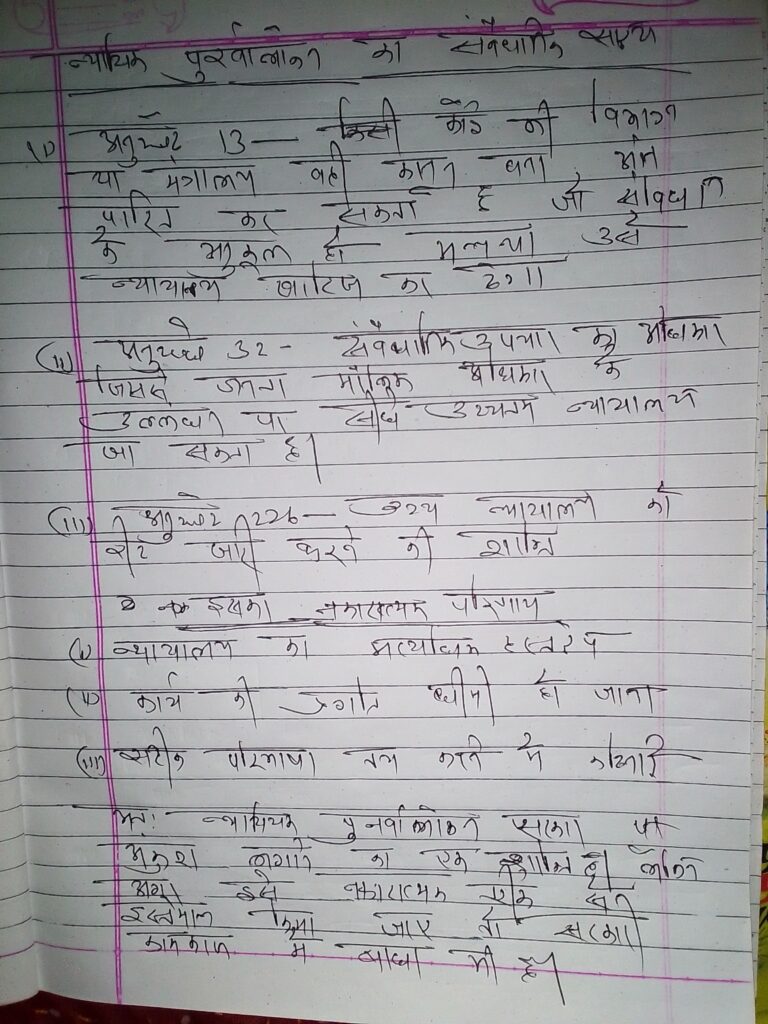 न्यायिक पुर्नवालोकन का संवैधानिक साक्ष्य
(i) अनुच्छेद 13 — किसी की विभाग
या मंत्रालय वही कानून बना
पारित कर सकता है जो संविधान
के अनुकूल हो अन्यथा उसे
न्यायालय खारिज कर देगा।
(ii) अनुच्छेद 32 - संवैधानिक उपचारों का अधिकार
जिससे जनता मौलिक अधिकारों के
उल्लंघन पर सीधे उच्चतम न्यायालय
जा सकता है।
(iii) अनुच्छेद 226 — उच्च न्यायालय को
रीट जारी करने की शक्ति
इसका नकारात्मक परिणाम
(i) न्यायालय का अत्यधिक हस्तक्षेप
(ii) कार्य की प्रगति धीमी हो जाना
(iii) सटीक परिभाषा तय करने में कठिनाई
अतः न्यायियक पुनर्वालोकन सरकार पर
अंकुश लगाने का एक शक्ति है लेकिन
अगर इसे नकारात्मक
इस्तेमाल किया जाए तो सरकारी
कामकाज में बाधा भी है।